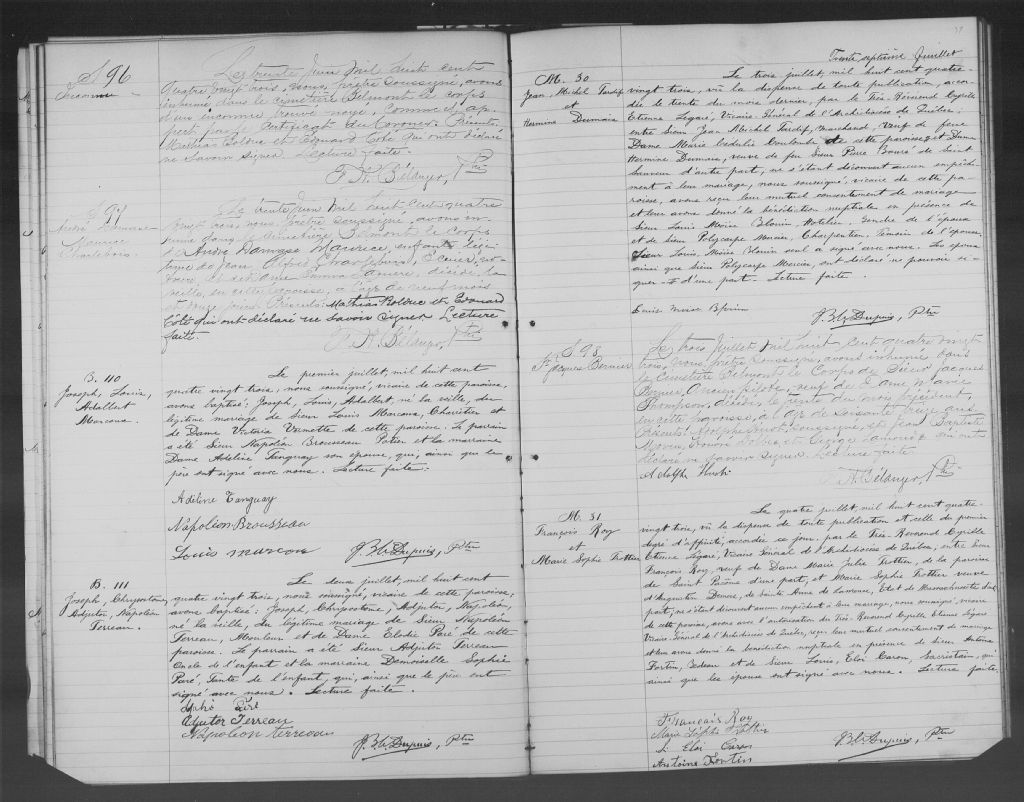 S. 96
Inconnu
Le trente Juin Mil huit cent
quatre vingt trois, nous, prêtre soussigné, avons
inhumé dans le cimetière Belmont le corps
d'un inconnu trouvé noyé, comme il ap-
pert par le certificat du Coroner. Présents
Mathias Bolduc et Edouard Côté qui ont déclaré
ne savoir signer. Lecture faite.
F. H. Bélanger, Ptre
S. 97
André Damase
Maurice
Charlebois
Le trente Juin mil huit cent quatre
vingt trois nous prêtre soussigné, avons in-
humé dans le cimetière Belmont le corps
de André Damase Maurice, enfant légi-
time de Jean Alfred Charlebois, Ecuier, no-
taire, et de Dame Emma décédé la
veille, en cette paroisse, à l'âge de neuf mois
Présents: Mathias Bolduc et Edouard
Côté qui ont déclaré ne savoir signer Lecture
faite.
F. H. Bélanger, Ptre
B. 110
Joseph, Louis,
Adalbert
Marcoux.
Le premier juillet, mil huit cent
quatre vingt trois, nous soussigné, vicaire de cette paroisse,
avons baptisé: Joseph, Louis, Adalbert, né la veille, du
légitime mariage de Sieur Louis Marcoux, Charretier et
de Dame Victoria Vermette de cette paroisse. Le parrain
a été Sieur Napoléon Brousseau Potier et la marraine
Dame Adeline Tanguay son épouse, qui, ainsi que le
père ont signé avec nous. Lecture faite.
Adeline Tanguay
Napoléon Brousseau
Louis Marcoux J. Bte Dupuis, Ptre
B. 111
Joseph, Chrysostome,
Adjutor, Napoléon
Terreau.
Le deux juillet, mil huit cent
quatre vingt trois, nous soussigné, vicaire de cette paroisse,
avons baptisé: Joseph, Chrysostome, Adjutor, Napoléon,
né la veille, du légitime mariage de Sieur Napoléon
Terreau, Mouleur et de Dame Elodie Paré de cette
paroisse. Le parrain a été Sieur Adjutor Terreau
Oncle de l'enfant et la marraine Demoiselle Sophie
Paré, Tante de l'enfant, qui, ainsi que le père ont
signé avec nous. Lecture faite.
Sophie Paré
Adjutor Terreau
Napoléon Terreau
J. Bte Dupuis, Ptre
37
Trente septième feuillet
M. 30
Jean, Michel Tardif
et
Hermine Dumais
Le trois juillet, mil huit cent quatre-
vingt trois, vû la dispense de toute publication, accor-
dée le trente du mois dernier, par le Très-Révérend Cyrille
Etienne Légaré, Vicaire-Général de l'Archidiocèse de Québec,
entre Sieur Jean Michel Tardif, Marchand, veuf de feue
Dame Marie Cedulie Coulombe de cette paroisse et Dame
Hermine Dumais, veuve de feu Sieur Pierre Bouré de Saint
Sauveur d'autre part, ne s'étant découvert aucun empêche-
ment à leur mariage, nous soussigné, vicaire de cette pa-
roisse, avons reçu leur mutuel consentement de mariage
et leur avons donné la bénédiction nuptiale en présence de
Sieur Louis Moïse Blouin, Hotelier, Gendre de l'épouse
et de Sieur Polycarpe Mercier, Charpentier, Témoin de l'épouse,
Sieur Louis Moïse Blouin seul a signé avec nous. Les époux
ainsi que Sieur Polycarpe Mercier, ont déclaré ne pouvoir si-
gner d'une part. Lecture faite.
Louis Moise Blouin
J. Bte Dupuis, Ptre
S. 98
Jacques Bernier
Le trois Juillet mil huit cent quatre vingt
trois, nous prêtre soussigné, avons inhumé dans
le cimetière Belmont le corps de Sieur Jacques
Bernier, Ancien pilote, veuf de Dame Marie
Thompson, décédé, le trente du mois précédent,
en cette paroisse, à l'âge de soixante ans
Présents: Adolphe soussigné, et Jean Baptiste
ne savoir signer. Lecture faite.
Adolphe
F. H. Bélanger, Ptre
M. 31
François Roy
et
Marie Sophie Trottier
Le quatre juillet, mil huit cent quatre-
vingt trois, vû la dispense de toute publication et celle du premier
degré d'affinité, accordées ce jour, par le Très-Révérend Cyrille
Etienne Légaré, Vicaire Général de l'Archidiocèse de Québec, entre Sieur
François Roy, veuf de Dame Marie Julie Trottier, de la paroisse
de Saint Pacôme d'une part, et Marie Sophie Trottier veuve
d'Augustin de Sainte Anne de Lawrence, Etat de Massachusetts d'autre
part, ne s'étant découvert aucun empêchement à leur mariage, nous soussigné, vicaire
de cette paroisse, avons avec l'autorisation du Très-Révérend Cyrille Etienne Légaré
Vicaire Général de l'Archidiocèse de Québec, reçu leur mutuel consentement de mariage
et leur avons donné la bénédiction nuptiale en présence de Sieur Antoine
Fortin, Bedeau et de Sieur Louis, Eloi Caron, Sacristain, qui
ainsi que les époux ont signé avec nous. Lecture faite.
François Roy
Marie Sophie Trottier
L. Eloi Caron
Antoine Fortin
J. Bte Dupuis, Ptre